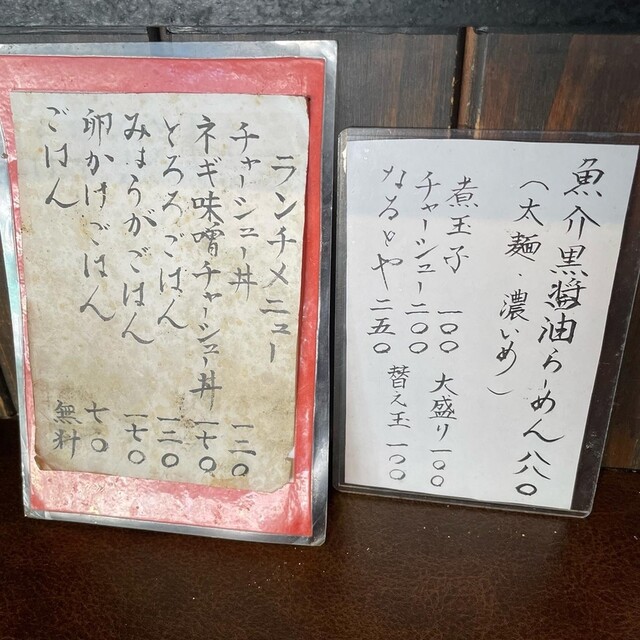 魚介黒醤油らーめん 八〇
(太麺・濃いめ)
煮玉子 一〇〇 大盛り 一〇〇
チャーシュー 二〇〇 替え玉 一〇〇
なるとや 二五〇
ランチメニュー
チャーシュー丼 一三〇
ネギ味噌チャーシュー丼 一七〇
とろろごはん 一三〇
みょうがごはん 一七〇
卵かけごはん 七〇
ごはん 無料